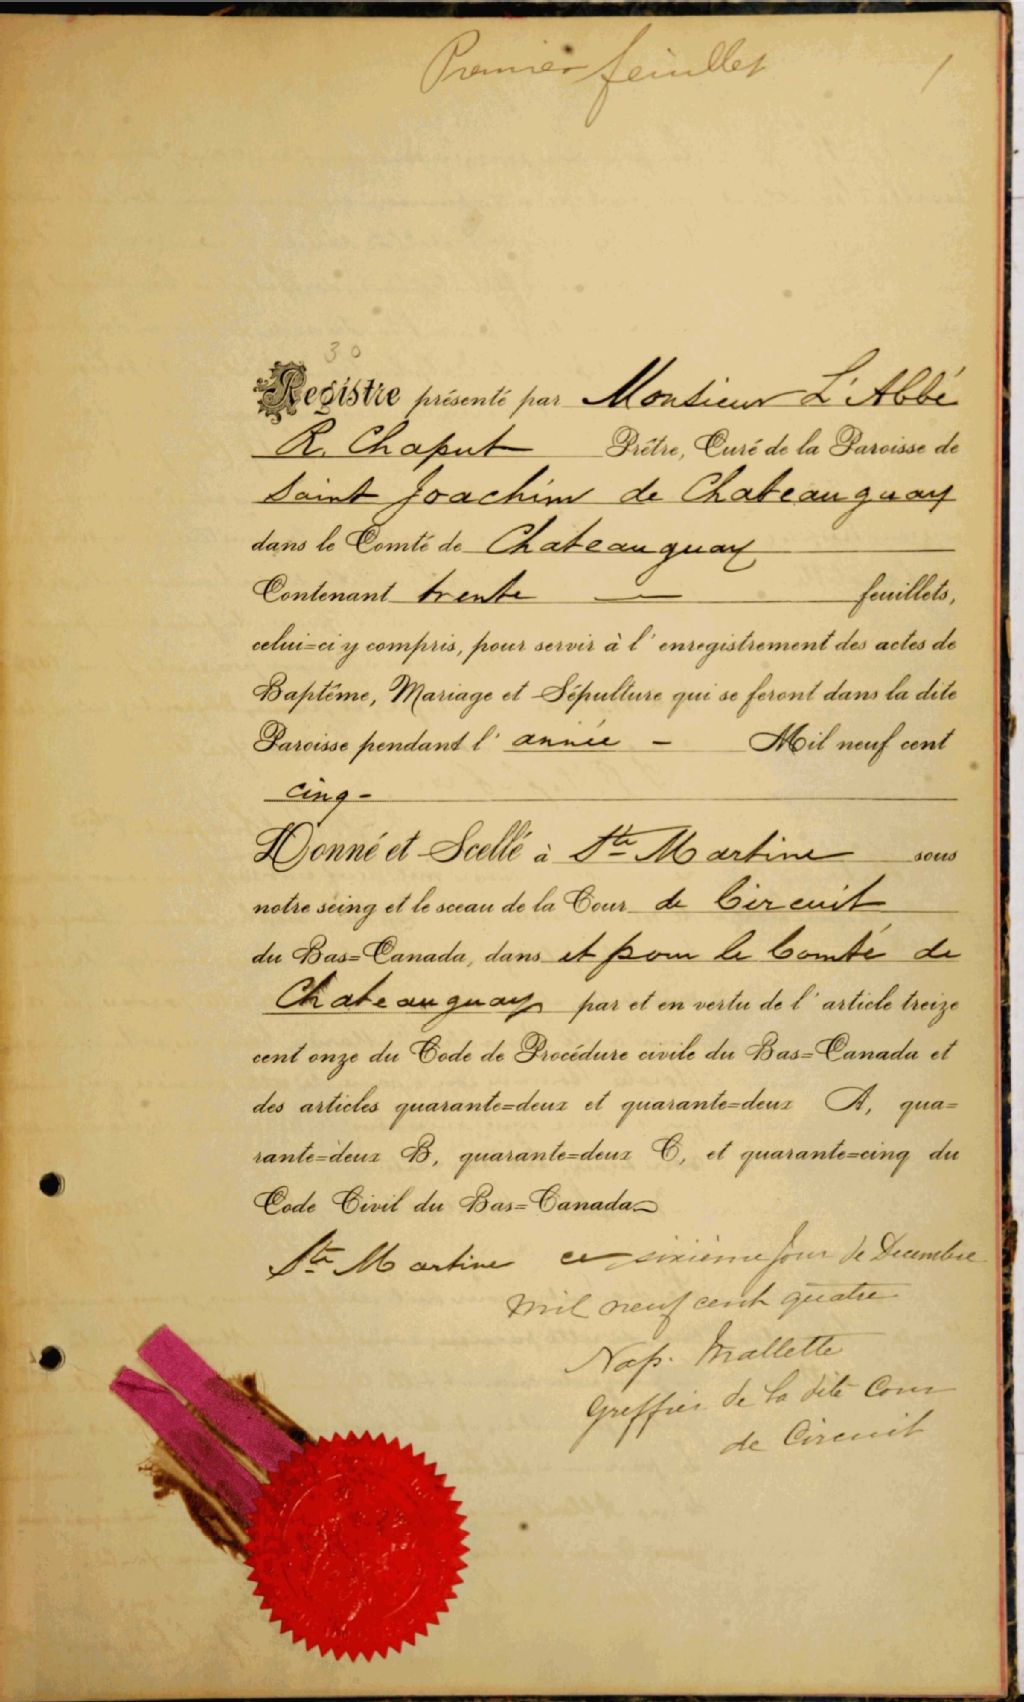 Premier feuillet 1
30
Registre présenté par Monsieur L'Abbé
R. Chaput Prêtre, Curé de la Paroisse de
Saint Joachim de Chateauguay
dans le Comté de Chateauguay
Contenant trente — feuillets,
celui=ci y compris, pour servir à l'enregistrement des actes de
Baptême, Mariage et Sépulture qui se feront dans la dite
Paroisse pendant l'année - Mil neuf cent
cinq -
Donné et Scellé à Ste Martine sous
notre seing et le sceau de la Cour de Circuit
du Bas=Canada, dans et pour le Comté de
Chateauguay par et en vertu de l'article treize
cent onze du Code de Procédure civile du Bas=Canada et
des articles quarante=deux et quarante=deux A, qua=
rante=deux B, quarante=deux C, et quarante=cinq du
Code Civil du Bas=Canada
Ste Martine ce sixième jour de Decembre
mil neuf cent quatre
Nap. Mallette
Greffier de la dite Cour
de Circuit